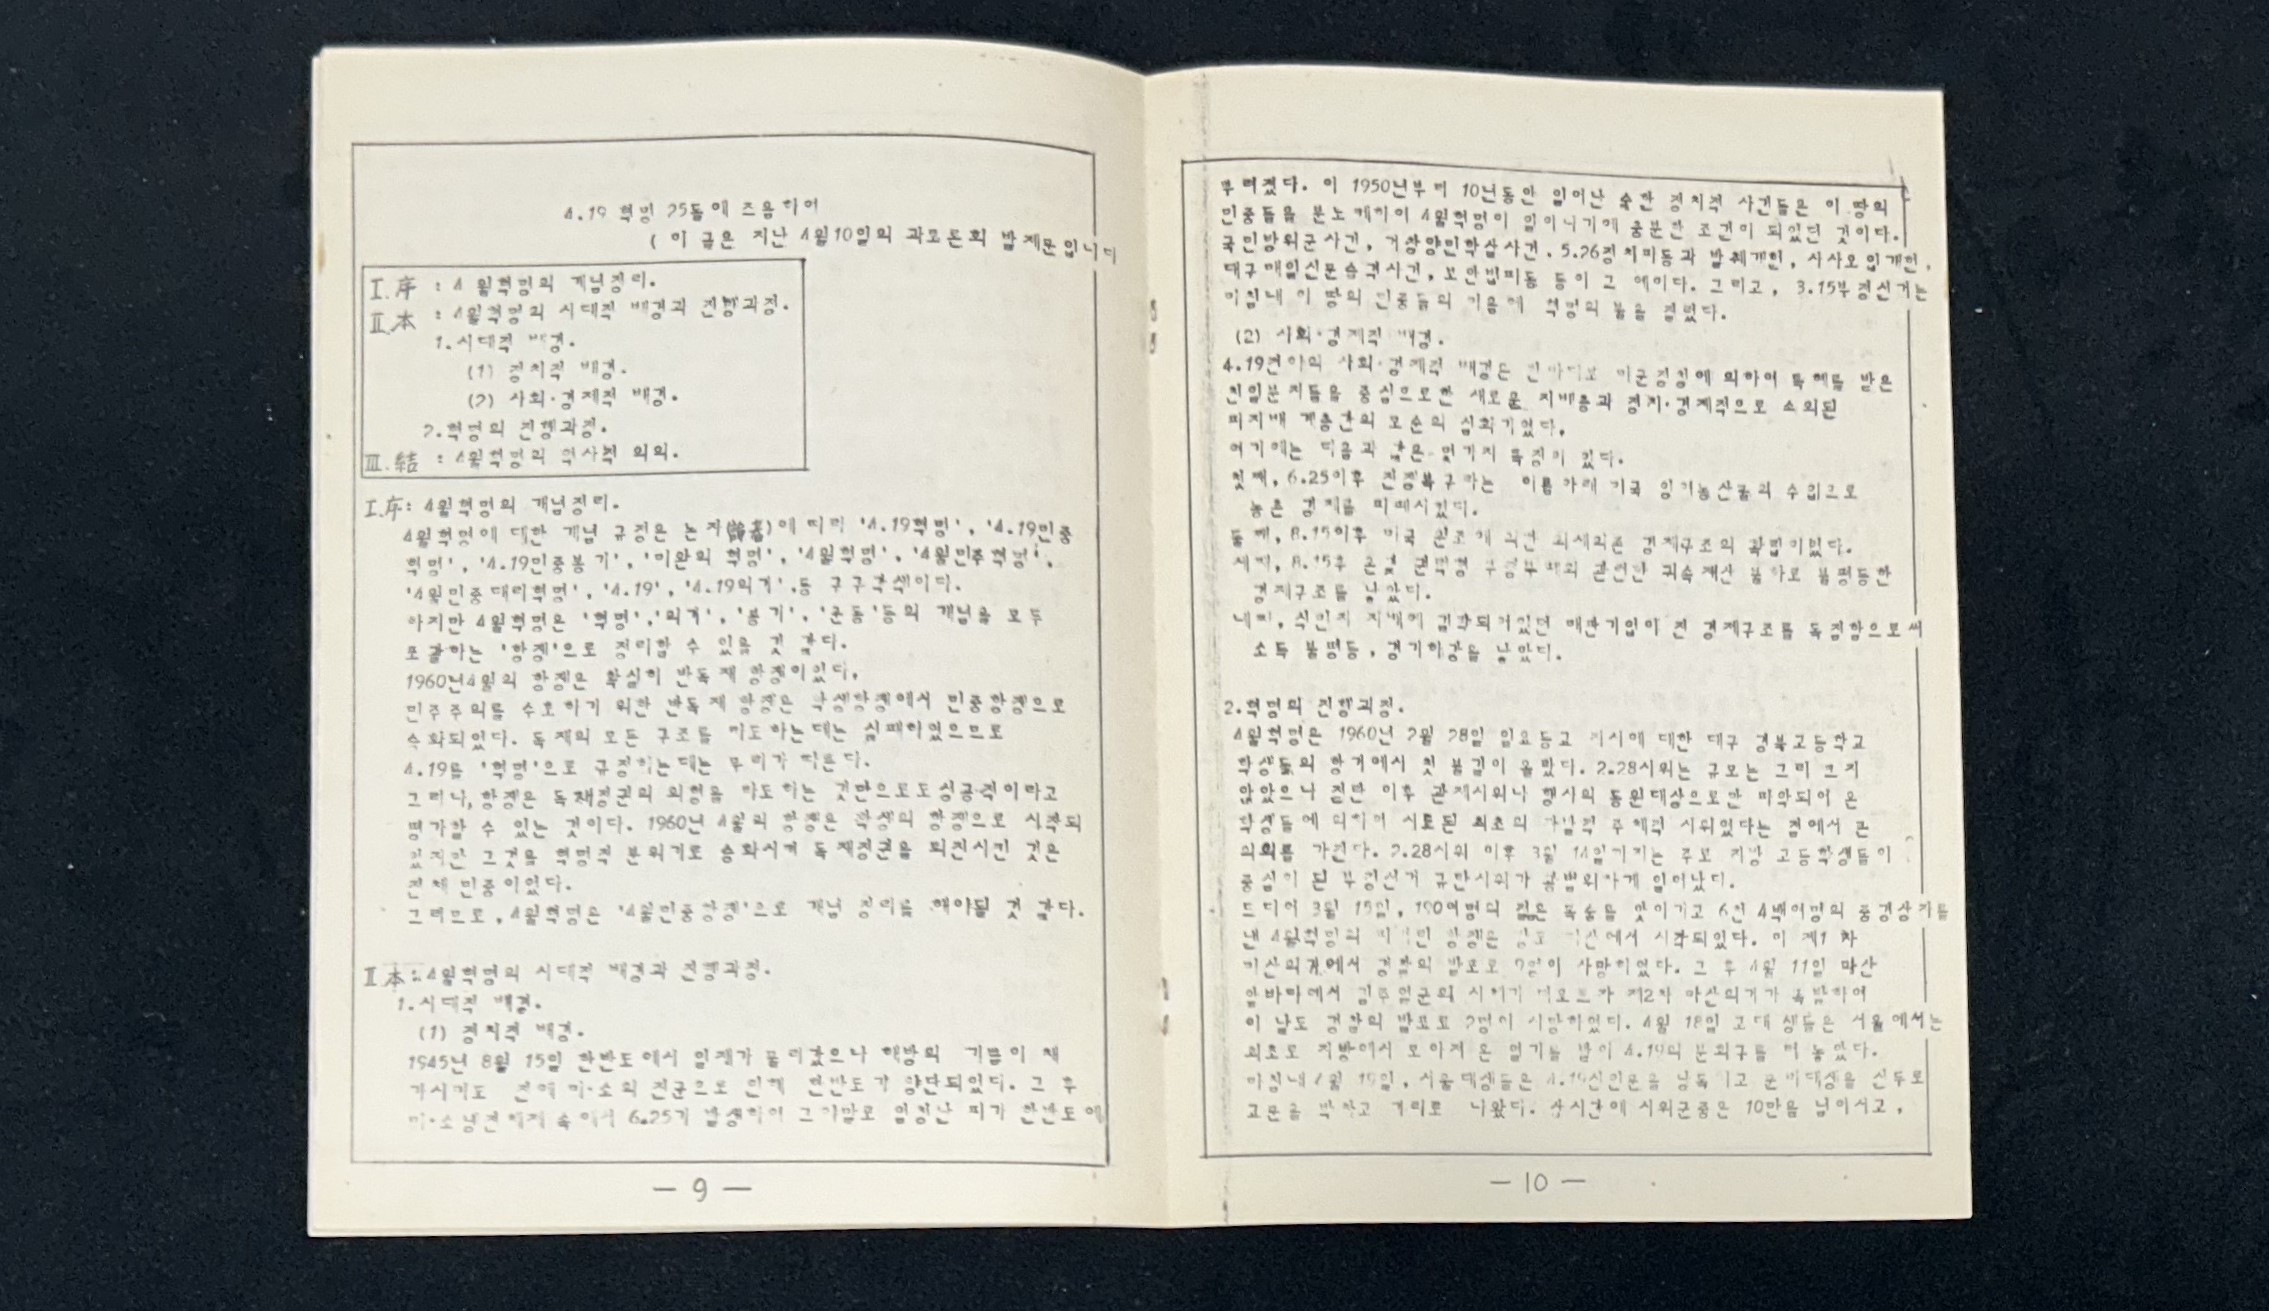 4.19 혁명 25돌에 즈음하여
( 이 글은 지난 4월10일의 과토론회 발제문입니다
I.序 : 4월혁명의 개념정리.
II.本 : 4월혁명의 시대적 배경과 진행과정.
1.시대적 배경.
(1) 정치적 배경.
(2) 사회·경제적 배경.
2.혁명의 진행과정.
III.結 : 4월혁명의 역사적 의의.
I.序: 4월혁명의 개념정리.
4월혁명에 대한 개념 규정은 논자(論者)에 따라 '4.19혁명', '4.19민중
혁명', '4.19민중봉기', '미완의 혁명', '4월혁명', '4월민주혁명',
'4월민중대미혁명', '4.19', '4.19의거',등 구구각색이다.
하지만 4월혁명은 '혁명','의거', '봉기', '운동'등의 개념을 모두
포괄하는 '항쟁'으로 정리할 수 있을 것 같다.
1960년4월의 항쟁은 확실히 반독재 항쟁이었다.
민주주의를 수호하기 위한 반독재 항쟁은 학생항쟁에서 민중항쟁으로
승화되었다. 독재의 모든 구조를 타도하는데는 실패하였으므로
4.19를 '혁명'으로 규정하는데는 무리가 따른다.
그러나,항쟁은 독재정권의 외형을 타도하는 것만으로도 성공적이라고
평가할 수 있는 것이다. 1960년 4월의 항쟁은 학생의 항쟁으로 시작되
었지만 그것을 혁명적 분위기로 승화시켜 독재정권을 퇴진시킨 것은
전체 민중이었다.
그러므로,4월혁명은 '4월민중항쟁'으로 개념 정리를 해야될 것 같다.
II.本:4월혁명의 시대적 배경과 진행과정.
1.시대적 배경.
(1) 정치적 배경.
1945년 8월 15일 한반도에서 일제가 물러갔으나 해방의 기쁨이 채
가시기도 전에 미·소의 진군으로 인해 한반도가 양단되었다. 그 후
미·소냉전체제 속에서 6.25가 발생하여 그야말로 엄청난 피가 한반도에
— 9 —
뿌려졌다. 이 1950년부터 10년동안 일어난 숱한 정치적 사건들은 이 땅의
민중들을 분노케하여 4월혁명이 일어나기에 충분한 조건이 되었던 것이다.
국민방위군사건, 거창양민학살사건, 5.26정치파동과 발췌개헌, 사사오입개헌,
대구매일신문습격사건, 보안법파동 등이 그 예이다. 그리고, 3.15부정선거는
마침내 이 땅의 민중들의 가슴에 혁명의 불을 질렀다.
(2) 사회·경제적 배경.
4.19전야의 사회·경제적 배경은 한마디로 미군정청에 의하여 특혜를 받은
친일분자들을 중심으로한 새로운 지배층과 정치·경제적으로 소외된
피지배 계층간의 모순의 심화기였다.
여기에는 다음과 같은 몇가지 특징이 있다.
첫째, 6.25이후 전쟁복구라는 이름아래 미국 잉여농산물의 수입으로
농촌 경제를 피폐시켰다.
둘째, 8.15이후 미국 원조에 의한 외세의존 경제구조의 확립이었다.
세째, 8.15후 은 권력층 부정부패와 관련한 귀속재산 불하로 불평등한
경제구조를 낳았다.
네째, 식민지 지배에 길들되어있던 매판기업이 전 경제구조를 독점함으로써
소득 불평등, 경기하강을 낳았다.
2.혁명의 진행과정.
4월혁명은 1960년 2월 28일 일요등교 지시에 대한 대구 경북고등학교
학생들의 항거에서 첫 불길이 올랐다. 2.28시위는 규모는 그리 크지
않았으나 휴전 이후 관제시위나 행사의 동원대상으로만 파악되어 온
학생들에 의하여 시도된 최초의 자발적 주체적 시위였다는 점에서 큰
의의를 가진다. 2.28시위 이후 3월 14일까지는 주로 지방 고등학생들이
중심이 된 부정선거 규탄시위가 광범위하게 일어났다.
드디어 3월 15일, 190여명의 젊은 목숨을 앗아가고 6천 4백여명의 중경상자를
낸 4월혁명의 항쟁은 항도 마산에서 시작되었다. 이 제1차
마산의거에서 경찰의 발포로 9명이 사망하였다. 그 후 4월 11일 마산
앞바다에서 김주열군의 시체가 떠오르자 제2차 마산의거가 폭발하여
이 날도 경찰의 발포로 2명이 사망하였다. 4월 18일 고대 생들은 서울에서는
최초로 지방에서 모아져 온 열기를 받아 4.19의 분화구를 터 놓았다.
마침내 4월 19일, 서울대생들은 4.19선언문을 낭독하고 문리대생을 선두로
교문을 박차고 거리로 나왔다. 삽시간에 시위군중은 10만을 넘어서고,
— 10 —